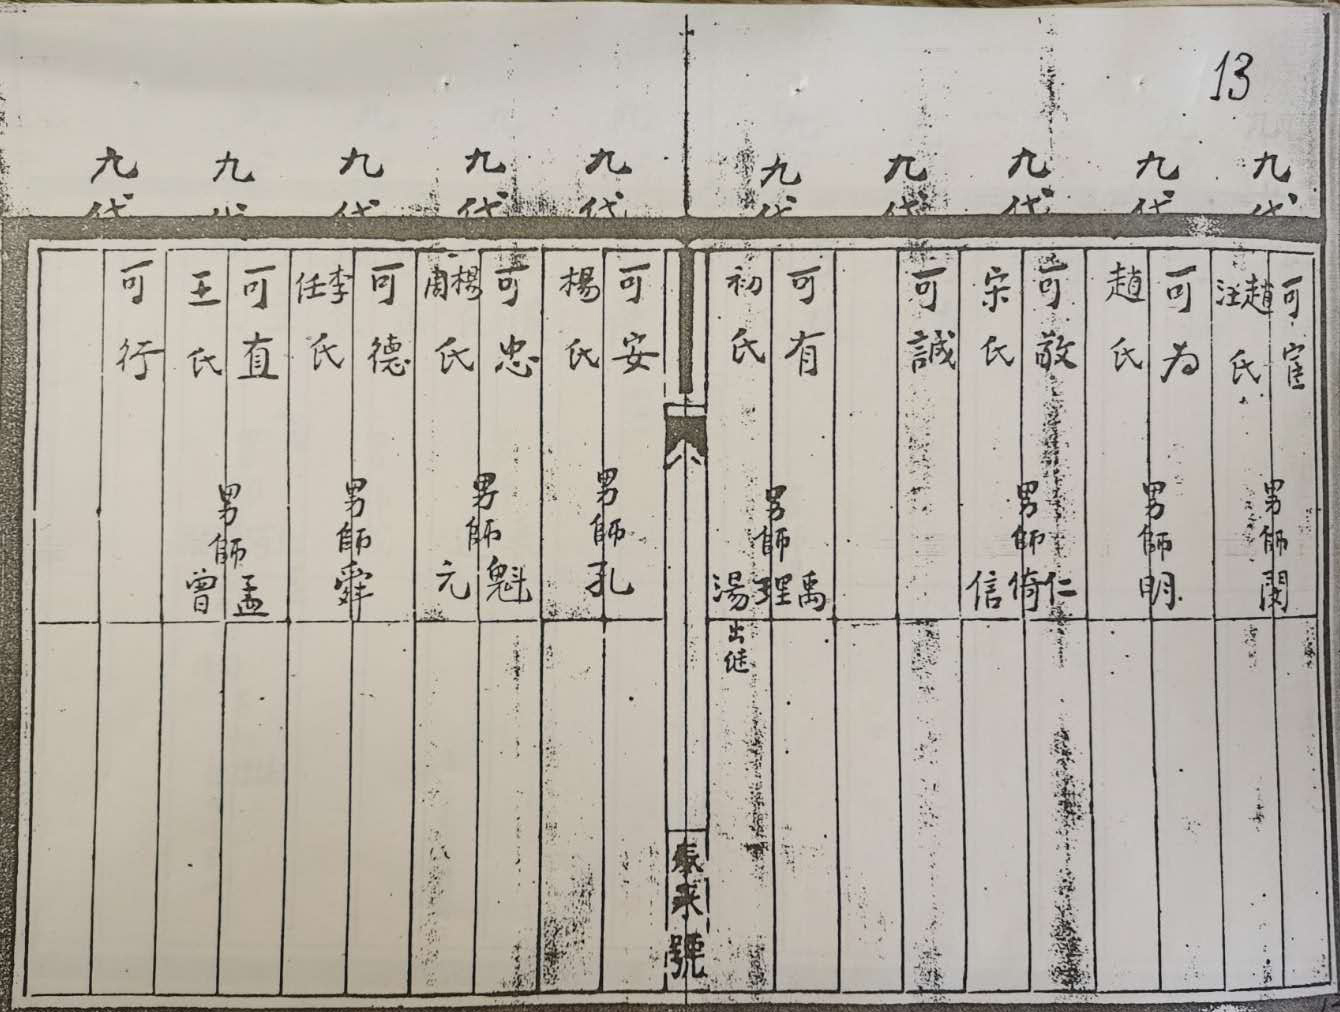 13
九代
可宦
趙汪氏
男師閔
九代
可为
趙氏
男師明
九代
可敬
宋氏
男師仁
倚
信
九代
可誠
九代
可有
初氏
男師禹
理
湯出继
九代
可安
楊氏
男師孔
九代
可忠
楊周氏
男師魁
元
九代
可德
李任氏
男師舜
九代
可直
王氏
男師孟
曾
九代
可行
來號